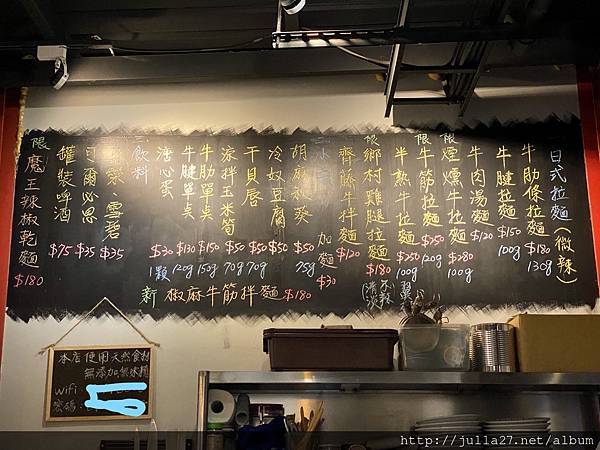 日式拉麵(微辣)
牛肋條拉麵 $180 130g
牛腱拉麵 $150 100g
牛肉湯麵 $120
限 煙燻牛拉麵 $280 100g
限 牛筋拉麵 $250 120g
半熟牛拉麵 $250 100g
限 鄉村雞腿拉麵 $180
(清淡 不辣)
齋藤牛拌麵 $120
加麵 $30
胡麻秋葵 $50 75g
冷奴豆腐 $50
干貝唇 $50 70g
涼拌玉米筍 $50 70g
牛肋單点 $150 150g
牛腱單点 $130 120g
溏心蛋 $30 1顆
飲料
雪碧 $35
可爾必思 $35
罐裝啤酒 $75
限 魔王辣椒乾麵 $180
新 椒麻牛筋拌麵 $180
本店使用天然食材
無添加無味精
Wifi:
密碼:
http://julla27.net/album